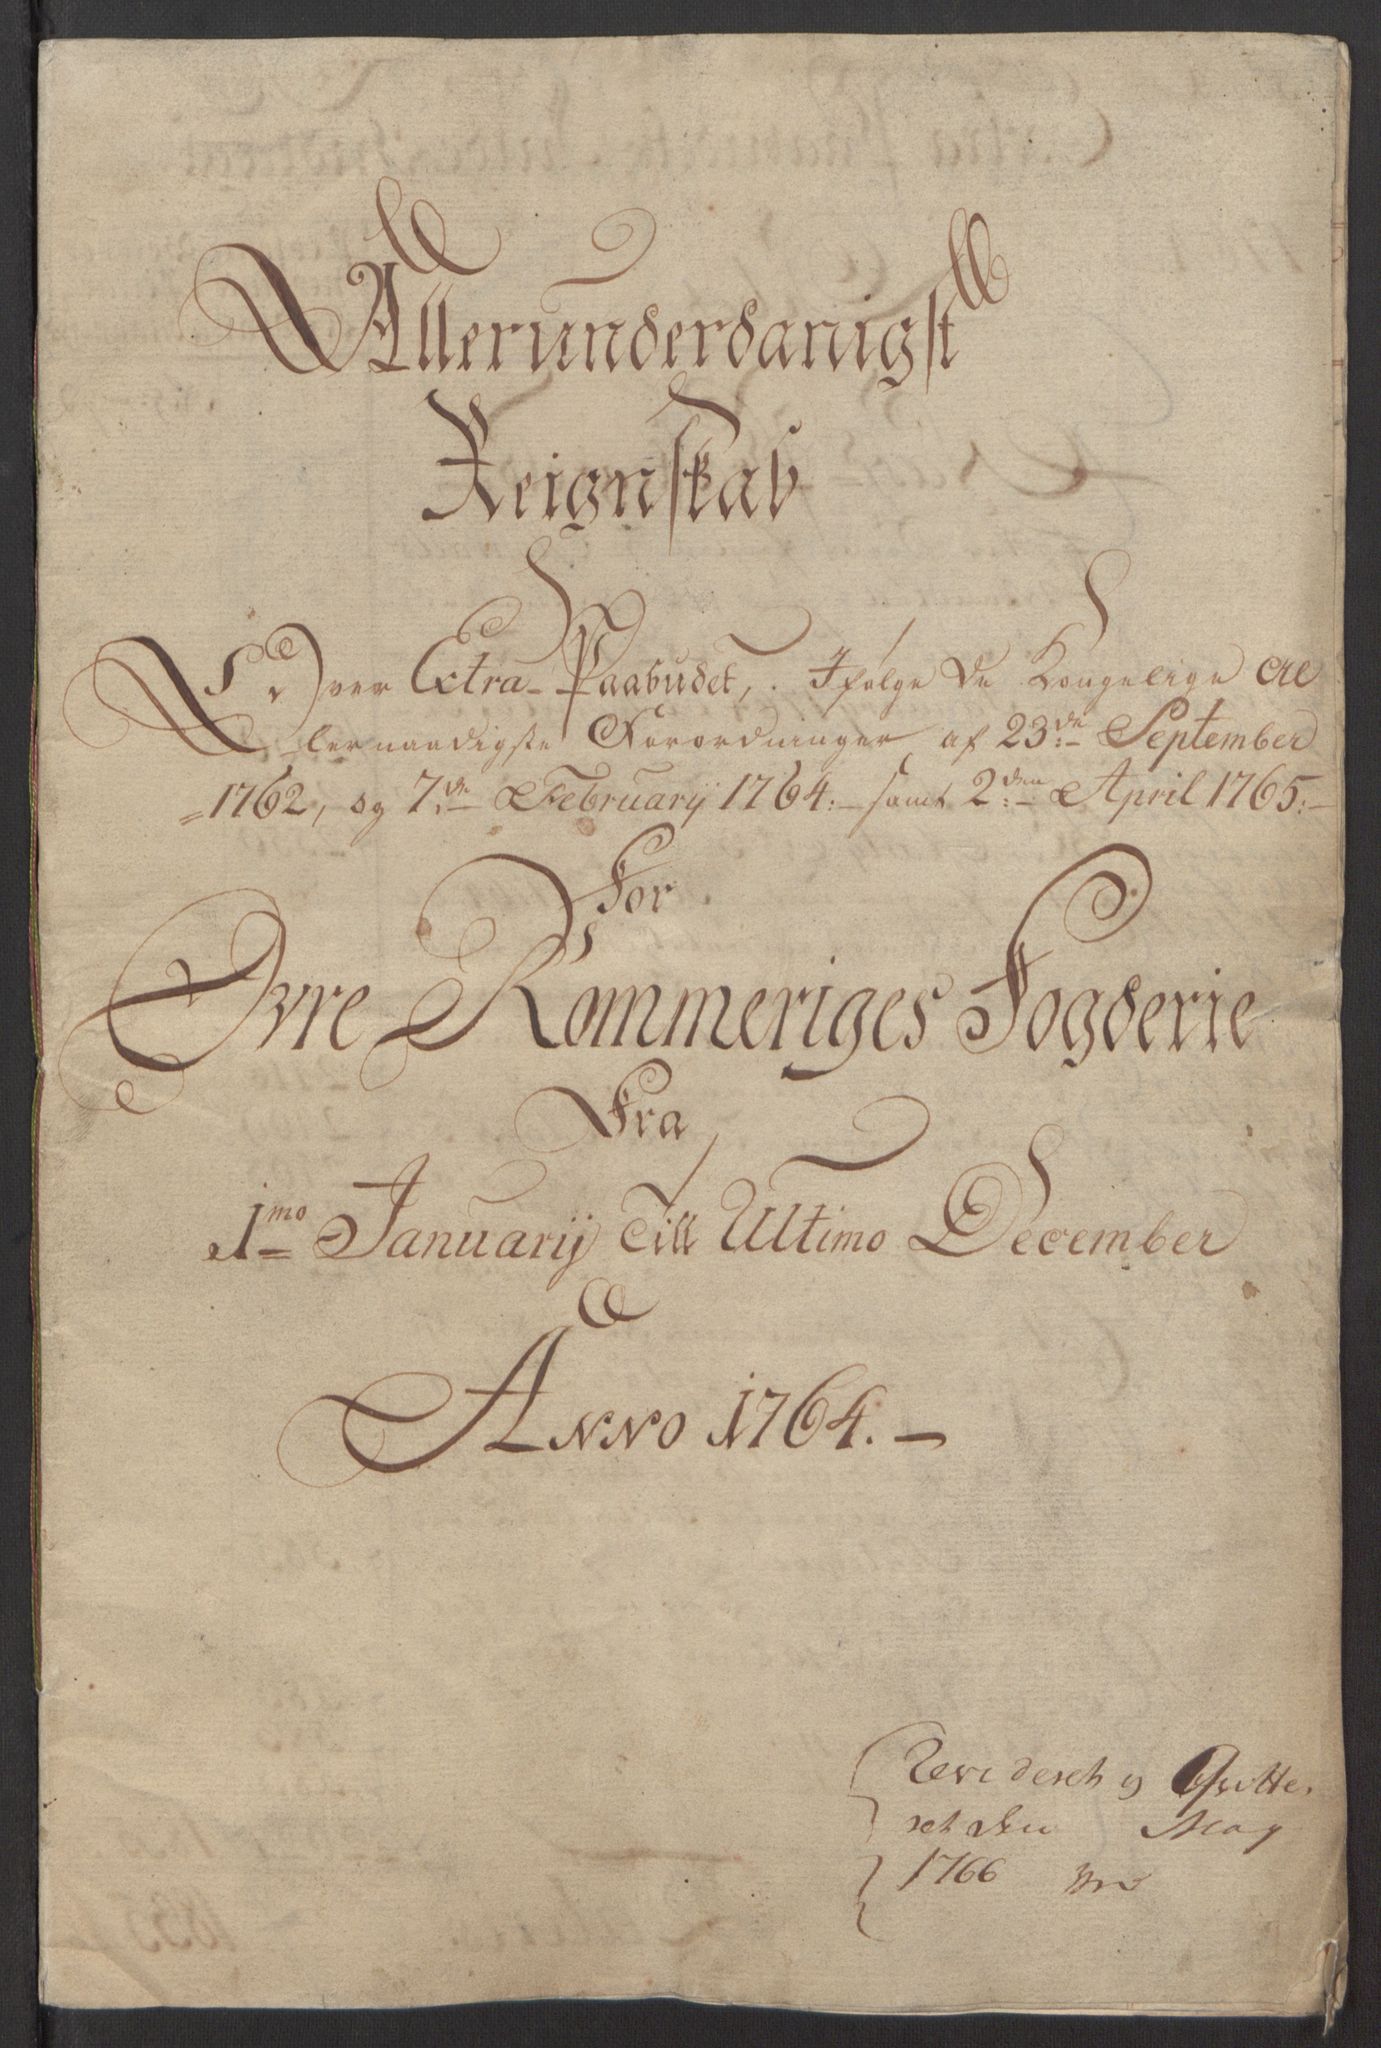 Allerunderdanigst
Reignskab
Over Extra-Paabudet, Ifølge De Kongelige All
ernaadigste Forordninger af 23:de September
1762, og 7:de Februarij 1764:- samt 2:den April 1765:-
For
Øvre Rommeriges Fogderie
Fra
1mo Januarij till Ultimo December
Anno 1764.-
Revideret og Qvitte
ret den May
1766